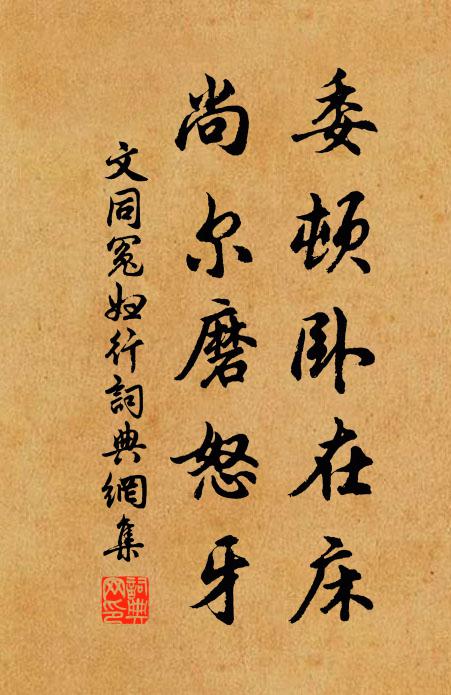 委顿卧在床
尚尔磨怒牙
文同冤妇行詞典網集
詞典网印